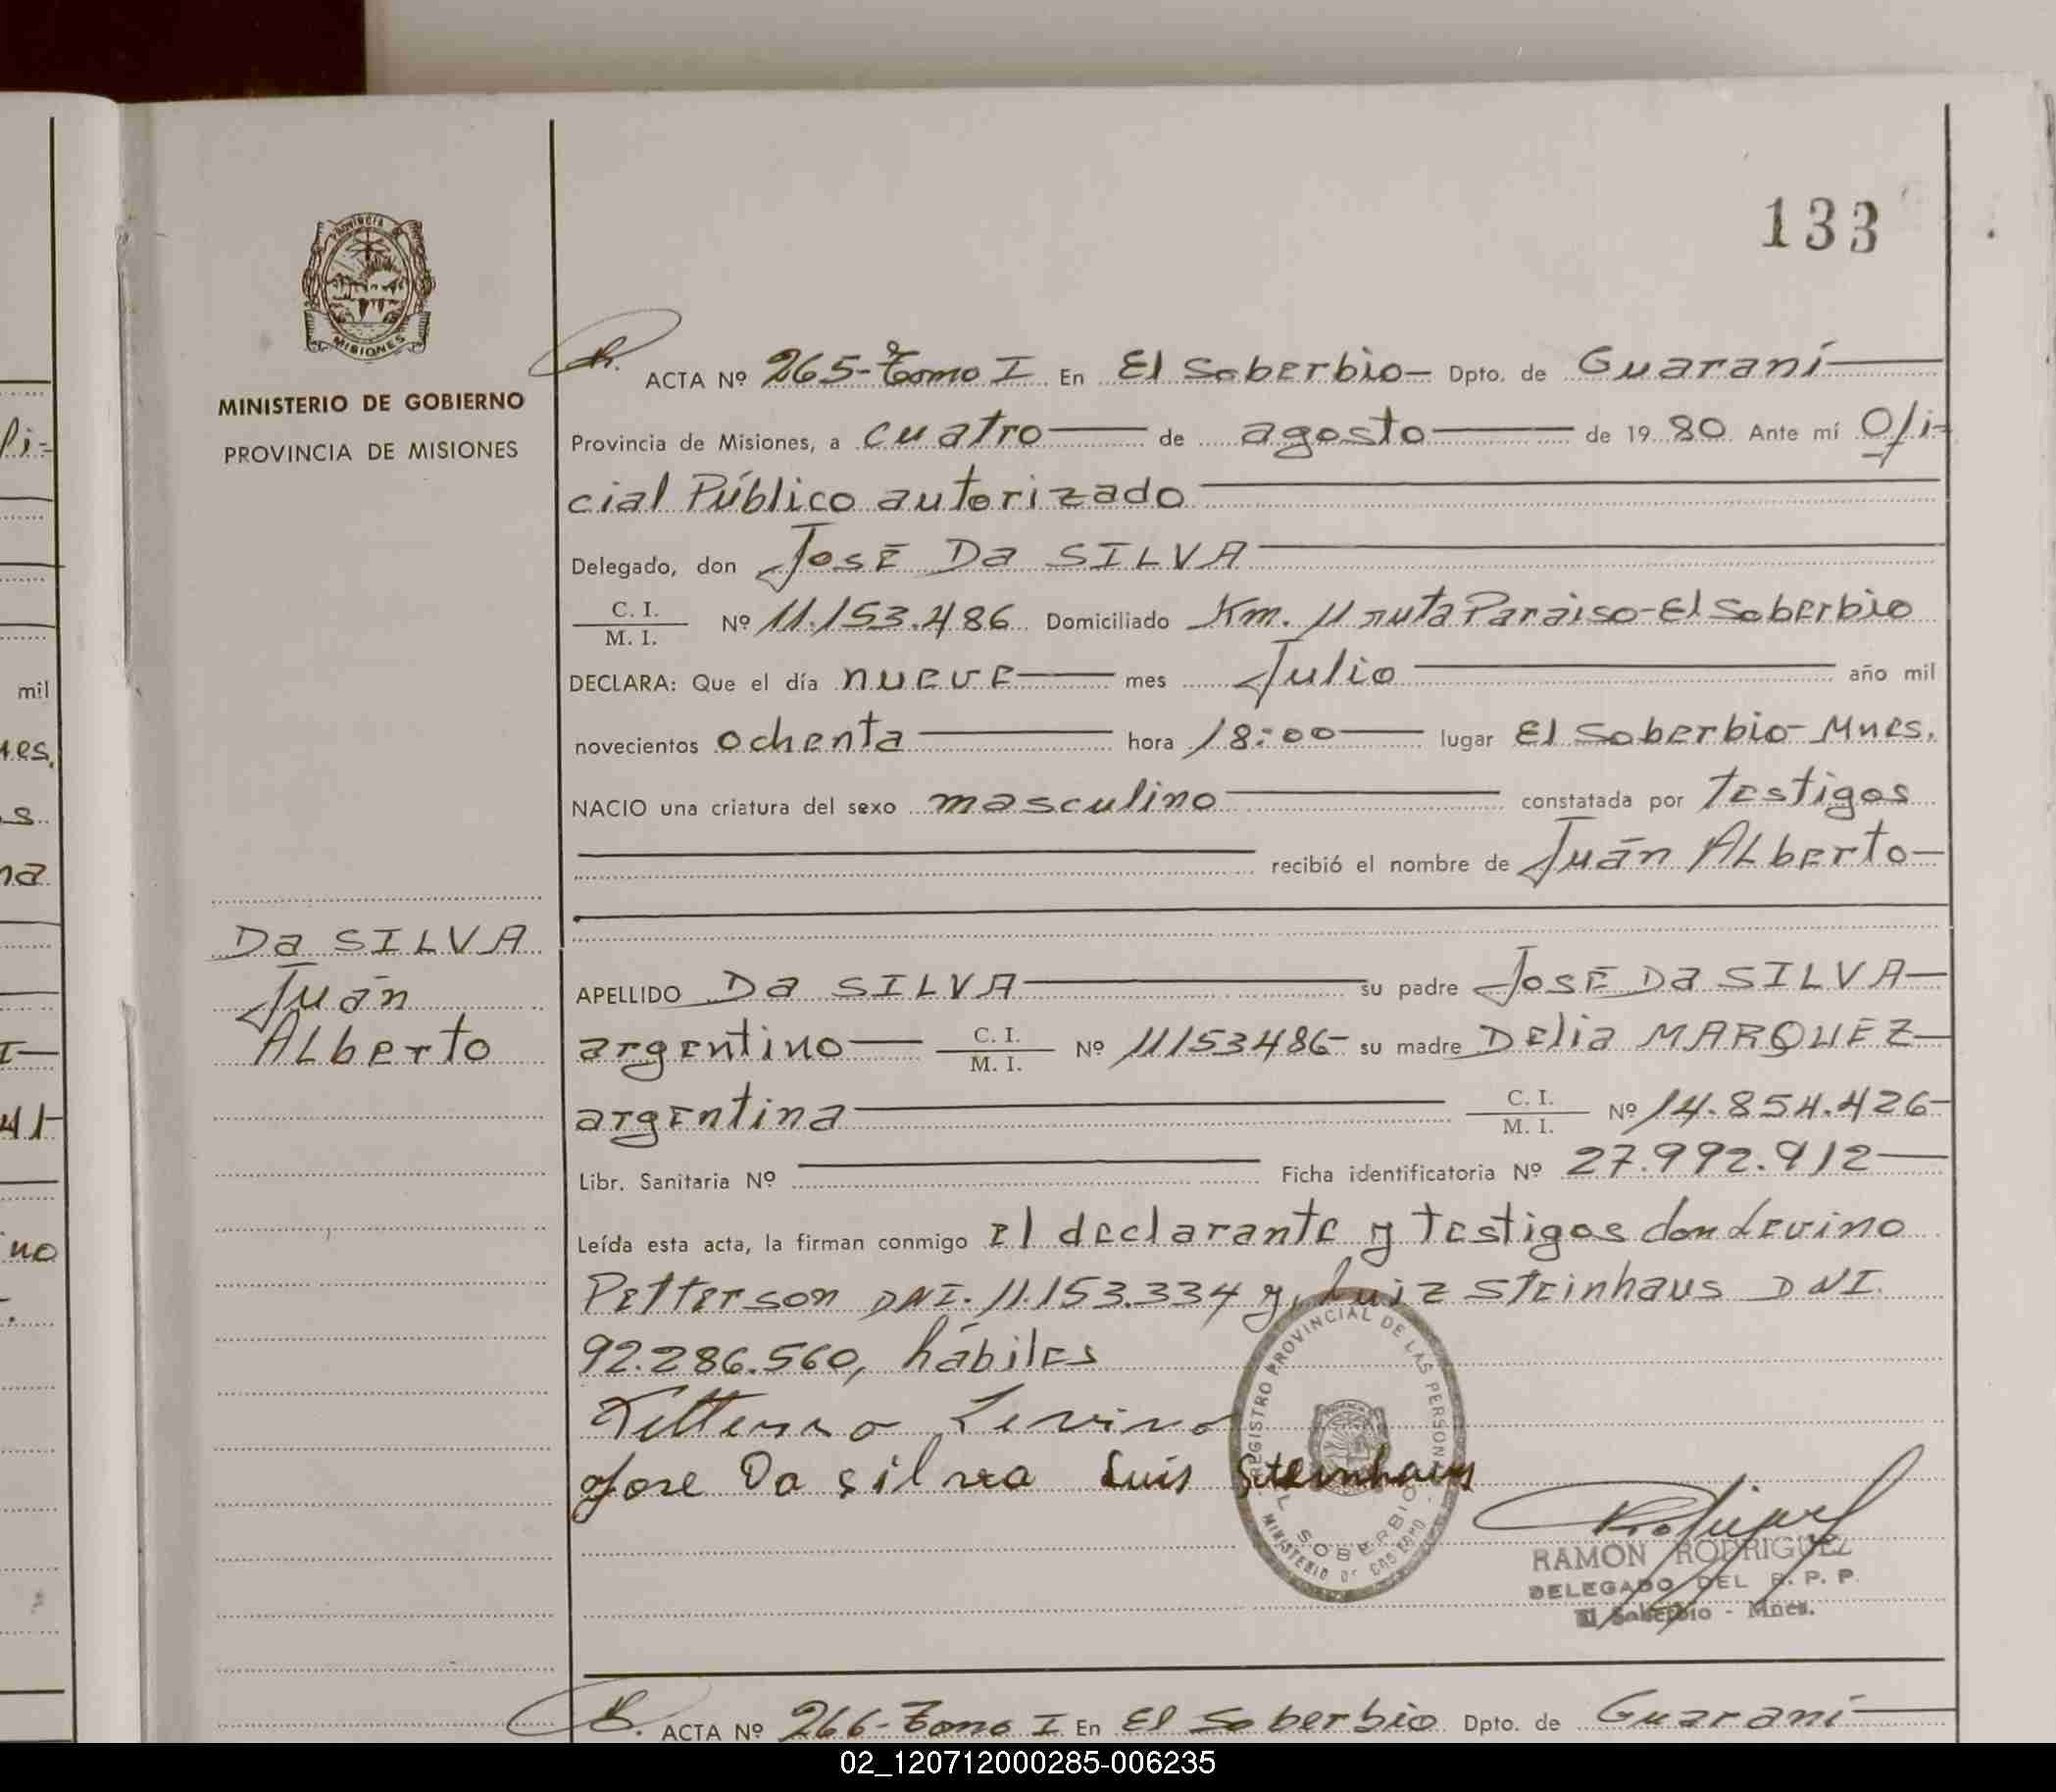 133
PROVINCIA DE
MISIONES
MINISTERIO DE GOBIERNO
PROVINCIA DE MISIONES
ACTA Nº 265-Tomo I En El Soberbio- Dpto. de Guaraní
Provincia de Misiones, a cuatro de agosto de 1980 Ante mí Ofi-
cial Público autorizado
Delegado, don José Da SILVA
C. I.
M. I. Nº 11.153.486 Domiciliado Km. 11 ruta Paraiso-El Soberbio
DECLARA: Que el día nueve mes Julio año mil
novecientos ochenta hora 18:00 lugar El Soberbio-Mnes.
NACIO una criatura del sexo masculino constatada por testigos
recibió el nombre de Juán ALberto
Da SILVA
Juán
ALberto
APELLIDO Da SILVA su padre José Da SILVA
argentino C. I.
M. I. Nº 11153486- su madre DElia MARQUEZ
argentina C. I.
M. I. Nº 14.854.426
Libr. Sanitaria Nº Ficha identificatoria Nº 27.992.912
Leída esta acta, la firman conmigo el declarante y testigos don Levino
Petterson DNI. 11.153.334 y, Luiz Steinhaus DNI.
92.286.560, hábiles
Levino
Jose Da silvra Luis Steinhaus
REGISTRO PROVINCIAL DE LAS PERSONAS
EL SOBERBIO
MINISTERIO DE GOBIERNO
RAMON RODRIGUEZ
DELEGADO DEL R. P. P.
El Soberbio - Mnes.
ACTA Nº 266-Tomo I En El Soberbio Dpto. de Guaraní
mil
02_120712000285-006235